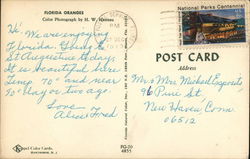 FLORIDA ORANGES
Color Photograph by H. W. Hannau
National Parks Centennial
POST CARD
Address
Hi! We are enjoying
Florida. Going to
St Augustine today.
It is beautiful here
Temp 70's and near
70 day or two ago.
Love
Alice Fred
Mr & Mrs Michael Esposito
96 Pine St
New Haven Conn
06512
Color Cards,
PG-20
4855